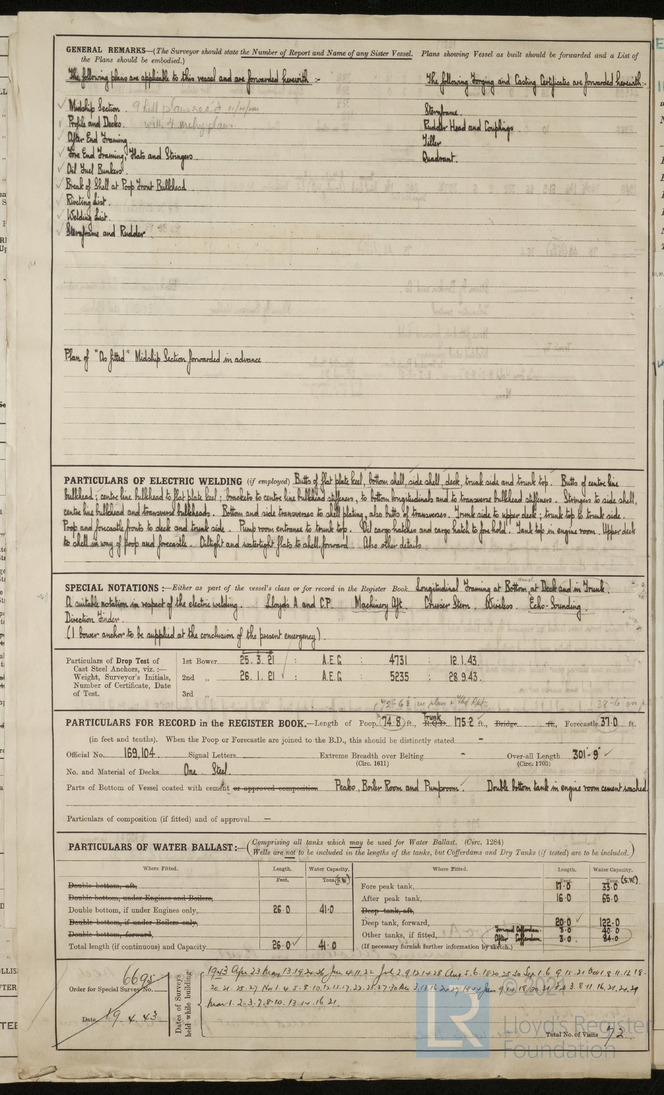 GENERAL REMARKS—(The Surveyor should state the Number of Report and Name of any Sister Vessel. Plans showing Vessel as built should be forwarded and a List of
the Plans should be embodied.)
The following plans are applicable to this vessel and are forwarded herewith :-
The following Forging and Casting Certificates are forwarded herewith :-
Midship Section.
Profile and Decks.
After End Framing.
Fore End Framing, Flats and Stringers.
Oil Fuel Bunkers.
Break of Shell at Poop Front Bulkhead
Riveting List.
Welding List.
Sternframe and Rudder.
Sternframe.
Rudder Head and Couplings.
Tiller
Quadrant.
Plan of "As fitted" Midship Section forwarded in advance
PARTICULARS OF ELECTRIC WELDING (if employed) Butts of flat plate keel, bottom shell, side shell, deck, trunk side and trunk top. Butts of centre line
bulkhead; centre line bulkhead to flat plate keel; brackets to centre line bulkhead stiffeners, to bottom longitudinals and to transverse bulkhead stiffeners. Stringers to side shell,
centre line bulkhead and transverse bulkheads. Bottom and side transverses to shell plating, also butts of transverses. Trunk side to upper deck; trunk top to trunk side.
Poop and forecastle fronts to deck and trunk side. Pump room entrance to trunk top. Oil cargo hatches and cargo hatch to fore hold. Tank top in engine room. Upper deck
to shell in way of poop and forecastle. Oiltight and watertight flats to shell forward. Also other details.
SPECIAL NOTATIONS :—Either as part of the vessel's class or for record in the Register Book. Longitudinal Framing at Bottom, at Deck and in Trunk.
A suitable notation in respect of the electric welding. Lloyds A and C.P. Machinery Aft. Cruiser Stern. Wireless. Echo-Sounding.
Direction Finder.
(1 bower anchor to be supplied at the conclusion of the present emergency).
Particulars of Drop Test of
Cast Steel Anchors, viz. :—
Weight, Surveyor's Initials,
Number of Certificate, Date
of Test.
1st Bower 25. 3. 21 : A.E.G : 4731 12.1.43.
2nd " 26. 1. 21 : A.E.G : 5235 : 28.9.43.
3rd "
PARTICULARS FOR RECORD in the REGISTER BOOK.—Length of Poop 74.8 ft., R.Q.D. Trunk 175.2 ft., Bridge ft., Forecastle 37.0 ft.
(in feet and tenths). When the Poop or Forecastle are joined to the B.D., this should be distinctly stated –
Official No. 169,104. Signal Letters Extreme Breadth over Belting – Over-all Length 301'-9"
(Circ. 1611) (Circ. 1703)
No. and Material of Decks One Steel.
Parts of Bottom of Vessel coated with cement or approved composition Peaks, Boiler Room and Pumproom. Double bottom tank in engine room cement washed
Particulars of composition (if fitted) and of approval –
PARTICULARS OF WATER BALLAST:—(Comprising all tanks which may be used for Water Ballast. (Circ. 1284)
Wells are not to be included in the lengths of the tanks, but Cofferdams and Dry Tanks (if tested) are to be included.)
Where Fitted. Length. Water Capacity. Where Fitted. Length. Water Capacity.
Feet. Tons (S.W) Feet. Tons (S.W)
Double bottom, aft,
Double bottom, under Engines and Boilers,
Double bottom, if under Engines only, 26.0 41.0
Double bottom, if under Boilers only,
Double bottom, forward,
Total length (if continuous) and Capacity 26.0 41.0
Fore peak tank, 17.0 33.0
After peak tank, 16.0 65.0
Deep tank, aft,
Deep tank, forward, 20.0 122.0
Other tanks, if fitted, Forward Cofferdam 3.0 40.0
After Cofferdam 3.0 84.0
(If necessary furnish further information by sketch.)
Order for Special Survey No. 6695
Date 19.4.43.
Dates of Surveys
held while building
Total No. of Visits 72
Lloyd's Register
Foundation